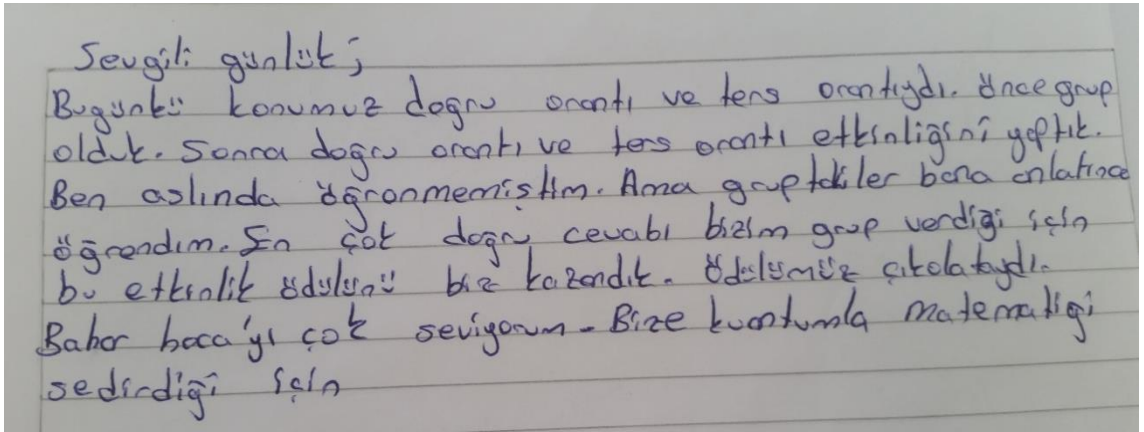 Sevgili günlük;
Bugünkü konumuz doğru orantı ve ters orantıydı. Önce grup
olduk. Sonra doğru orantı ve ters orantı etkinliğini yaptık.
Ben aslında öğrenmemiştim. Ama gruptakiler bana anlatınca
öğrendim. En çok doğru cevabı bizim grup verdiği için
bu etkinlik ödülünü biz kazandık. Ödülümüz çikolataydı.
Bahar hoca'yı çok seviyorum. Bize kuantumla matematiği
sedirdiği için